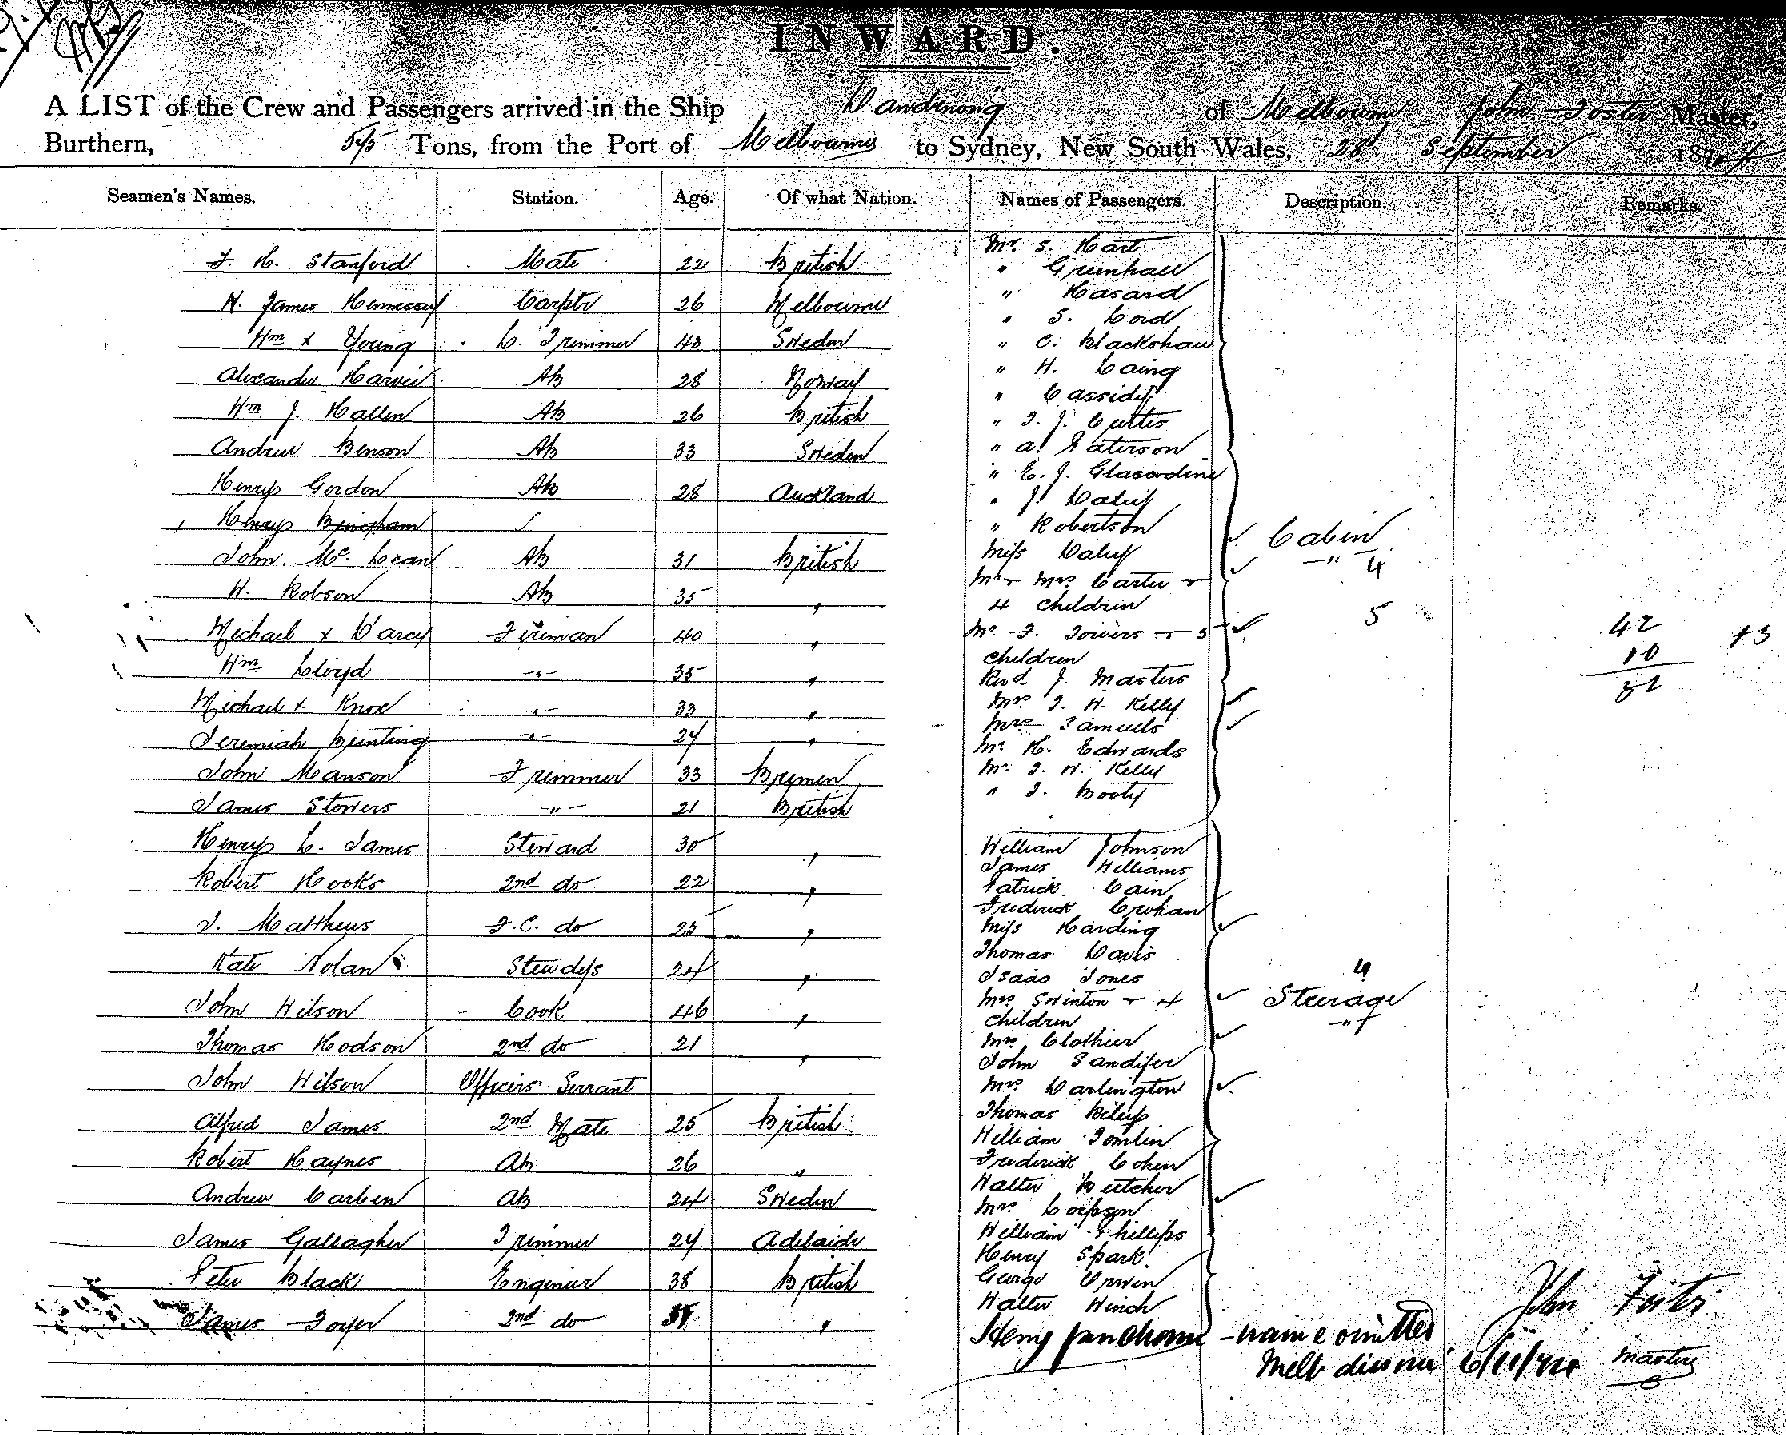 INWARD.
A LIST of the Crew and Passengers arrived in the Ship Dandenong of Melbourne John Foster Master,
Burthern, Tons, from the Port of Melbourne to Sydney, New South Wales, 28 September 187
Seamen's Names. Station. Age. Of what Nation. Names of Passengers. Description. Remarks.
J. H. Stanford Mate 22 British
N. James Hennessy Carptr 26 Melbourne
Wm x Young L. Trimmer 43 Sweden
Alexander Harvie AB 28 Norway
Wm J. Hallen AB 26 British
Andrew Benson AB 33 Sweden
Henry Gordon AB 28 Auckland
Henry Bingham
John McLean AB 31 British
H. Robson AB 35 "
Michael x Darcy Fireman 40 "
Wm Lloyd -"- 35 "
Michael x Knox -"- 33 "
Jeremiah Bunting -"- 24 "
John Manson Trimmer 33 Bremen
James Stowers -"- 21 British
Henry L. James Steward 30 "
Robert Hooks 2nd do 22 "
J. Matthews F.C. do 25 "
Kate Nolan Stewdss 24 "
John Wilson Cook 46 "
Thomas Hodson 2nd do 21 "
John Wilson Officers Servant
Alfred James 2nd Mate 25 British
Robert Haynes AB 26 "
Andrew Carlsen AB 24 Sweden
James Gallagher Trimmer 24 Adelaide
Peter Black Engineer 38 British
James 2nd do "
Mr. S. Hart
" Greenhall
" Hasard
" S. Cord
" C. Blackshaw
" H. Laing
" Cassidy
" T. J. Curtis
" A. Paterson
" E. J. Glasordine
" J. Daly
" Robertson
Miss Daly
Mr + Mrs Carter +
4 children
Mr. F. Towers + 5
children
Revd J. Masters
Mrs T. H. Kelly
Mrs Samuels
Mr H. Edwards
Mr. T. H. Kelly
" T. Booty
Cabin
-"- 4
5
42
10
52
+3
William Johnson
James Williams
Patrick Cain
Frederick Crohan
Miss Harding
Thomas Davis
Isaac Jones
Mrs Swinton + 4
children
Mrs Clothier
John Sandifer
Mrs Darlington
Thomas
William Tomlin
Frederick Cohen
Walter Butcher
Mrs
William Phillips
Henry Spark
George Irwin
Walter Winch
4
Steerage
-"-
Henry - name omitted
Melb
John Foster
Master